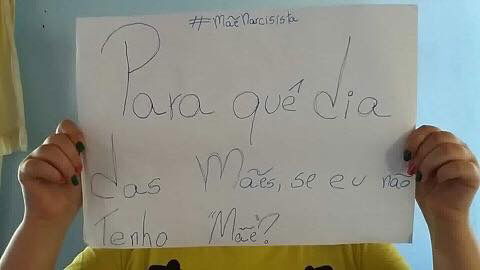 #MãeNarcisista
Para quê dia
das Mães, se eu não
Tenho "Mãe"?